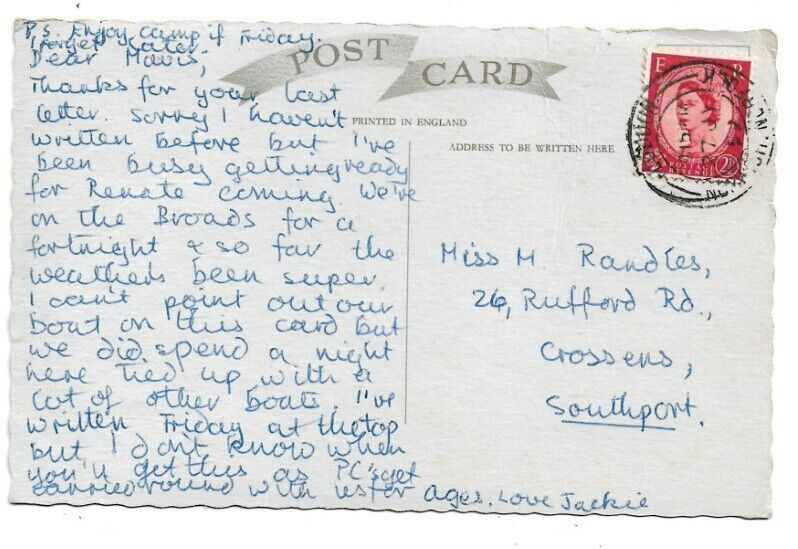 P.s. Enjoy camp if
I forget later.
Friday.
Dear Mavis,
Thanks for your last
letter. Sorry I haven't
written before but I've
been busy getting ready
for Renate coming. We're
on the Broads for a
fortnight & so far the
weather's been super.
I can't point out our
boat on this card but
we did spend a night
here tied up with a
lot of other boats. I've
written Friday at the top
but I don't know when
you'll get this as PC's get
carried round with us for ages. Love Jackie
POST CARD
PRINTED IN ENGLAND
ADDRESS TO BE WRITTEN HERE
E R
POSTAGE
REVENUE
2½
Miss M. Randles,
26, Rufford Rd.,
Crossens,
Southport.